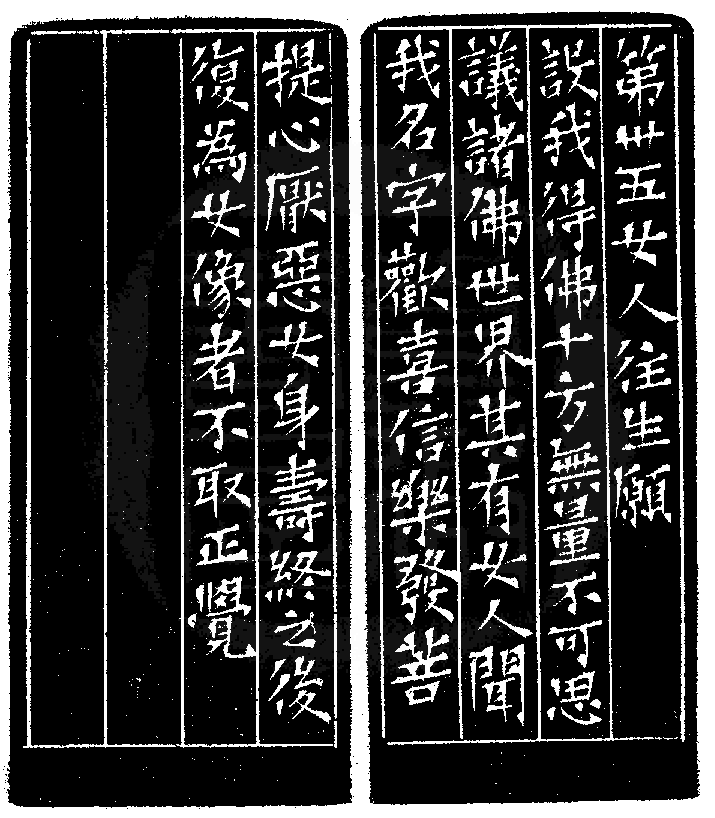 第卅五女人往生願
設我得佛十方無量不可思
議諸佛世界其有女人聞
我名字歡喜信樂發菩
提心厭惡女身壽終之後
復為女像者不取正覺